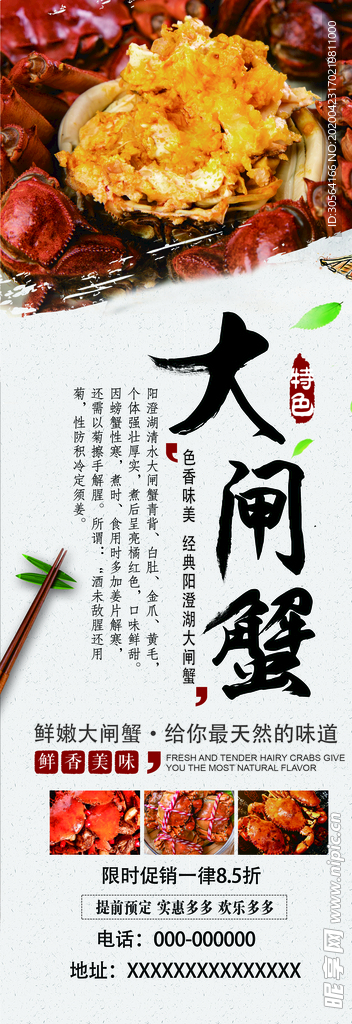 ID:30564166 NO:20200423170219811000
大闸蟹
特色
色香味美 经典阳澄湖大闸蟹
阳澄湖清水大闸蟹青背、白肚、金爪、黄毛，
个体强壮厚实，煮后呈亮橘红色，口味鲜甜。
因螃蟹性寒，煮时、食用时多加姜片解寒，
还需以菊擦手解腥。所谓：“酒未敌腥还用
菊，性防积冷定须姜。
鲜嫩大闸蟹·给你最天然的味道
鲜香美味
FRESH AND TENDER HAIRY CRABS GIVE
YOU THE MOST NATURAL FLAVOR
限时促销一律8.5折
提前预定 实惠多多 欢乐多多
电话：000-000000
地址：XXXXXXXXXXXXXXX
昵享网 www.nipic.cn